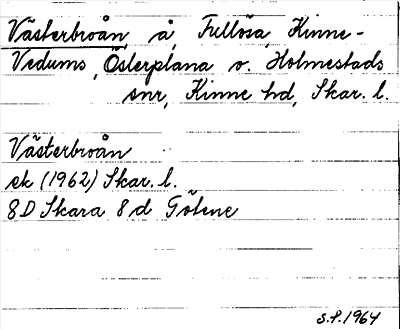 Västerbroån å Fullösa, Kinne-
Vedums, Österplana o. Holmestads
snr, Kinne hd, Skar. l.
Västerbroån
ek (1962) Skar. l.
8D Skara 8d Götene
S.P. 1964